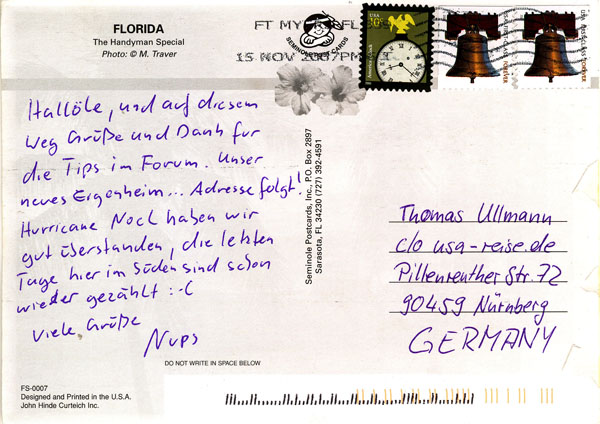 FLORIDA
The Handyman Special
Photo: © M. Traver
FT MYERS FL
15 NOV 2007 PM
SEMINOLE POST CARDS
USA
10c
America Clock
USA FIRST-CLASS FOREVER
USA FIRST-CLASS FOREVER
Hallöle, und auf diesem
Weg Grüße und Dank für
die Tips im Forum. Unser
neues Eigenheim... Adresse folgt!
Hurricane Noel haben wir
gut überstanden, die letzten
Tage hier im Süden sind schon
wieder gezählt :-C
Viele Grüße
Nups
Seminole Postcards, Inc., P.O. Box 2897
Sarasota, FL 34230 (727) 392-4591
Thomas Ullmann
c/o usa-reise.de
Pillenreuther Str. 72
90459 Nürnberg
GERMANY
DO NOT WRITE IN SPACE BELOW
FS-0007
Designed and Printed in the U.S.A.
John Hinde Curteich Inc.